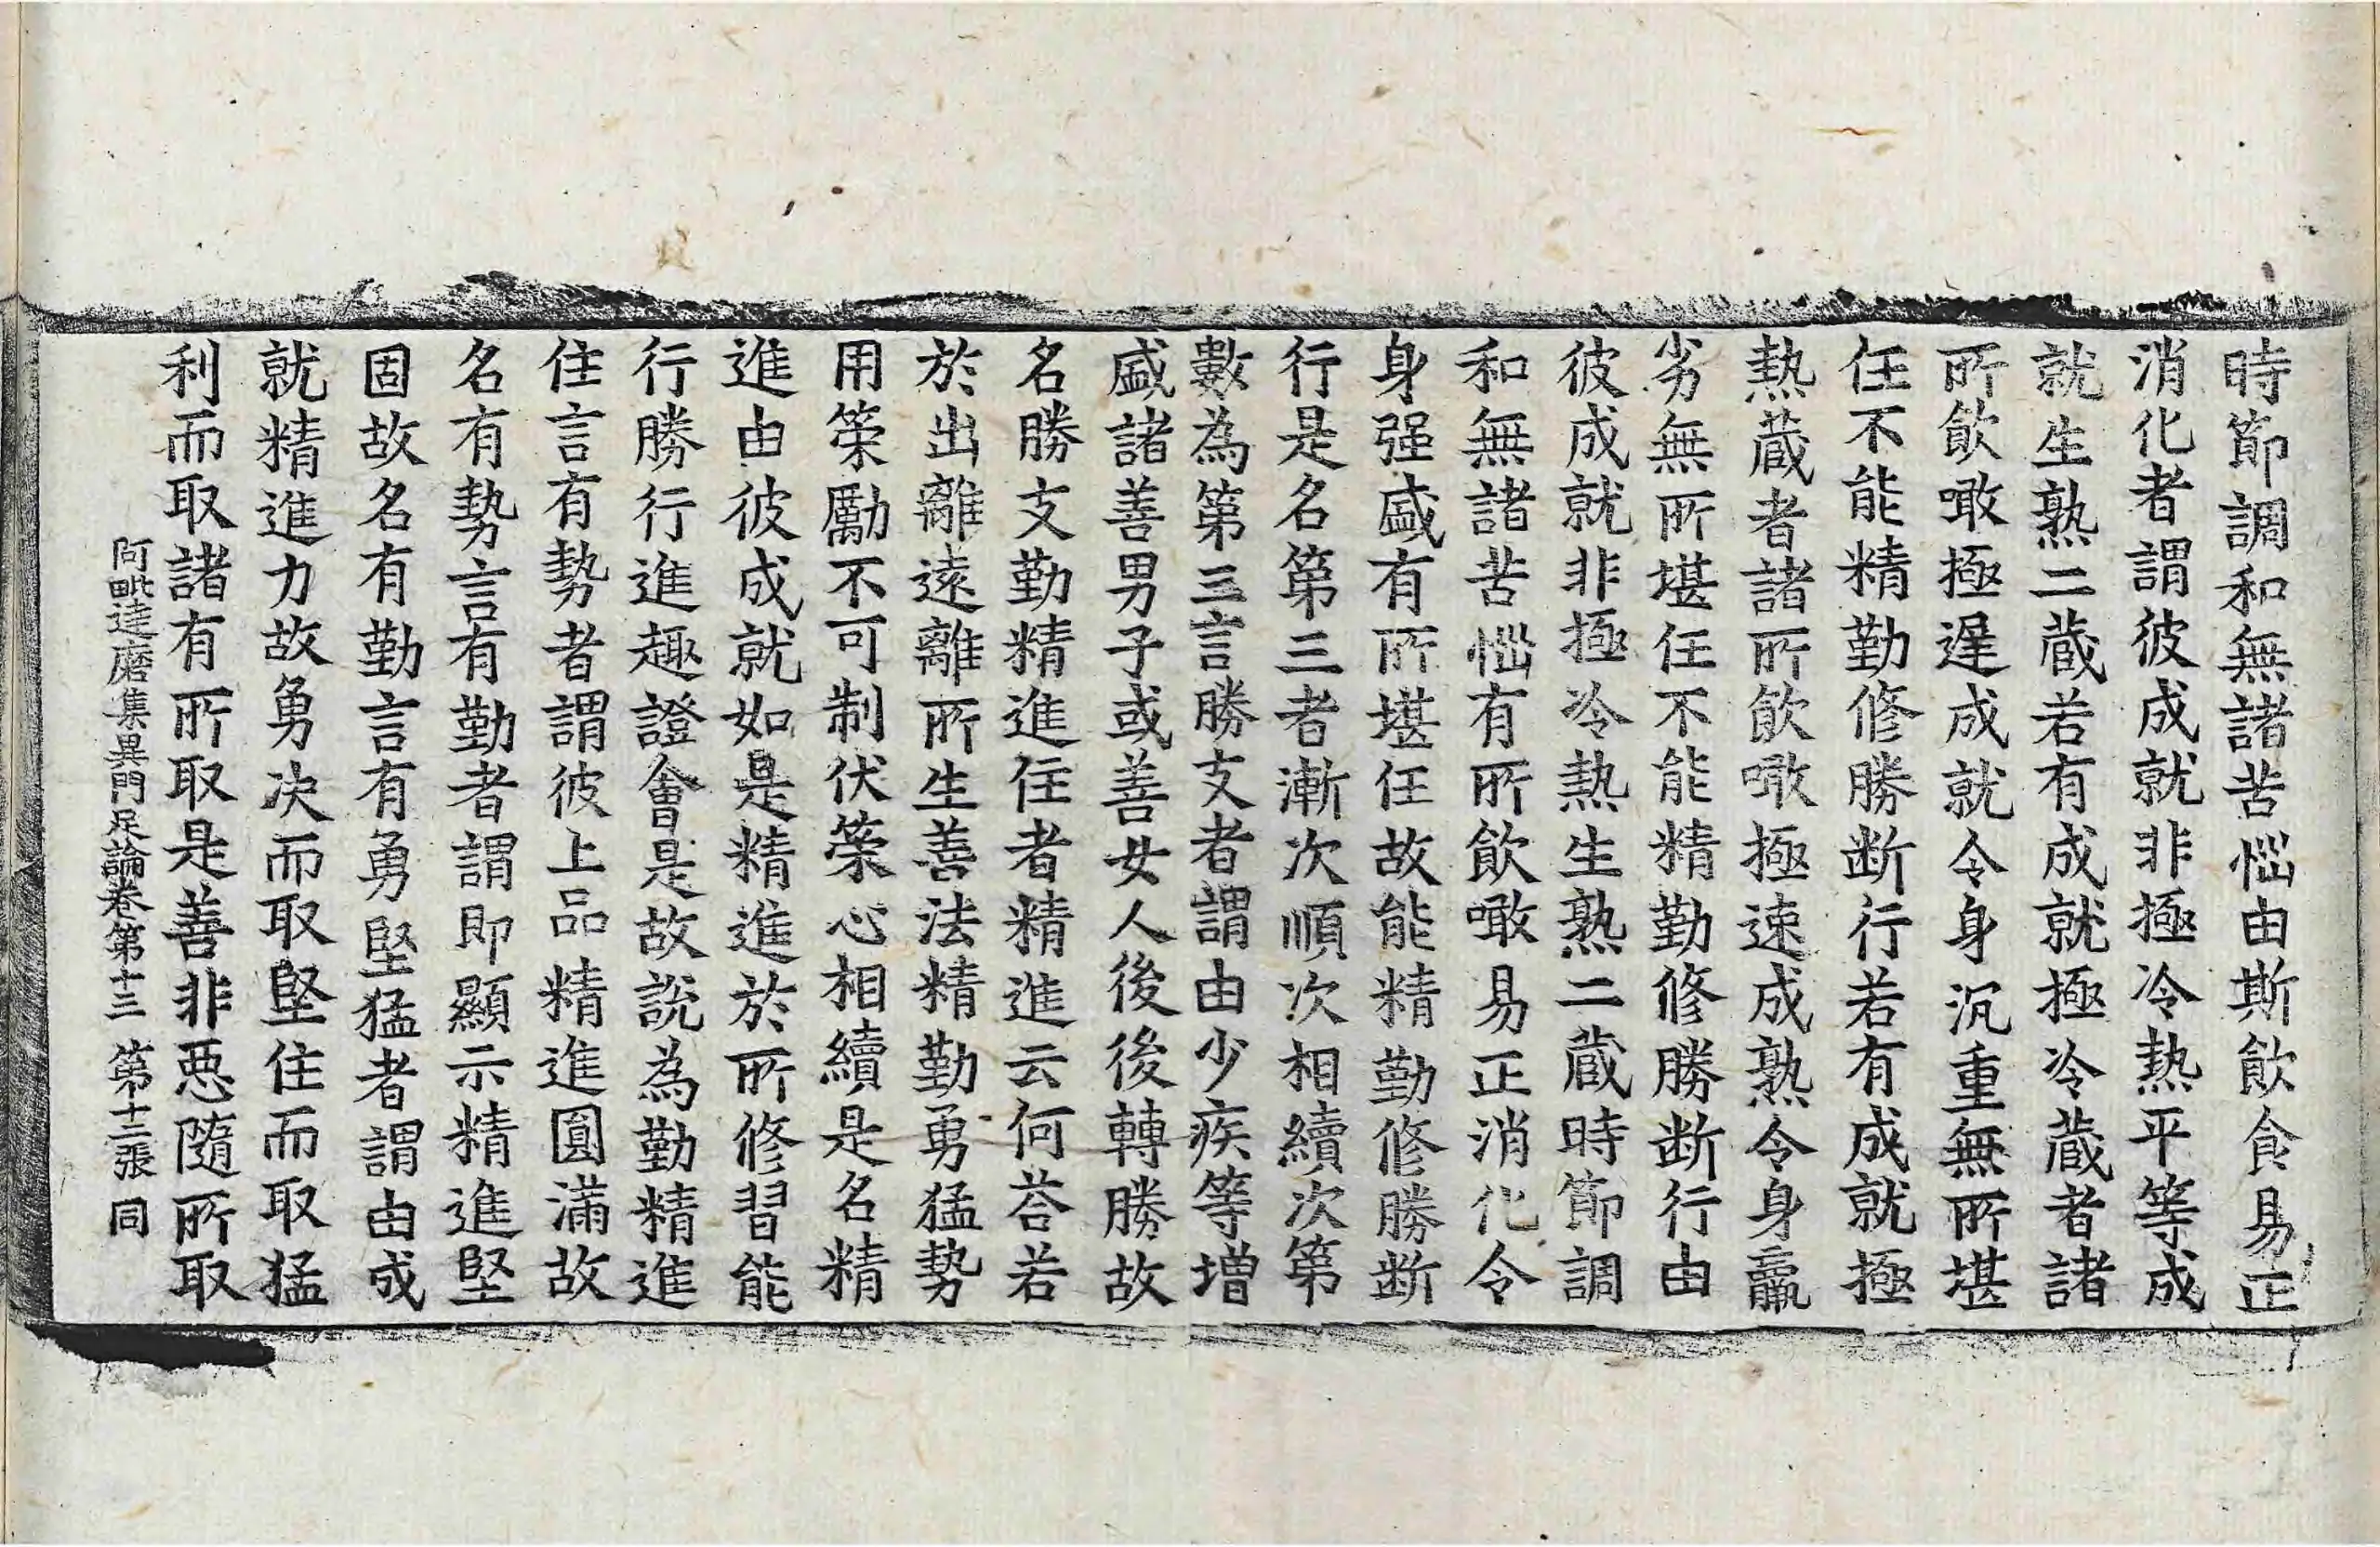 時節調和無諸苦惱由斯飲食易正
消化者謂彼成就非極冷熱平等成
就生熟二蔵若有成就極冷蔵者諸
所飲噉極遲成就令身沉重無所堪
任不能精勤修勝断行若有成就極
熱蔵者諸所飲噉極速成熟令身羸
劣無所堪任不能精勤修勝断行由
彼成就非極冷熱生熟二蔵時節調
和無諸苦惱有所飲噉易正消化令
身强盛有所堪任故能精勤修勝断
行是名第三者漸次順次相續次第
數為第三言勝支者謂由少疾等增
盛諸善男子或善女人後後轉勝故
名勝支勤精進住者精進云何荅若
於出離遠離所生善法精勤勇猛勢
用策勵不可制伏策心相續是名精
進由彼成就如是精進於所修習能
行勝行進趣證會是故說為勤精進
住言有勢者謂彼上品精進圓滿故
名有勢言有勤者謂即顯示精進堅
固故名有勤言有勇堅猛者謂由成
就精進力故勇决而取堅住而取猛
利而取諸有所取是善非惡隨所取
阿毗達磨集異門足論卷第十三 第十二張 同